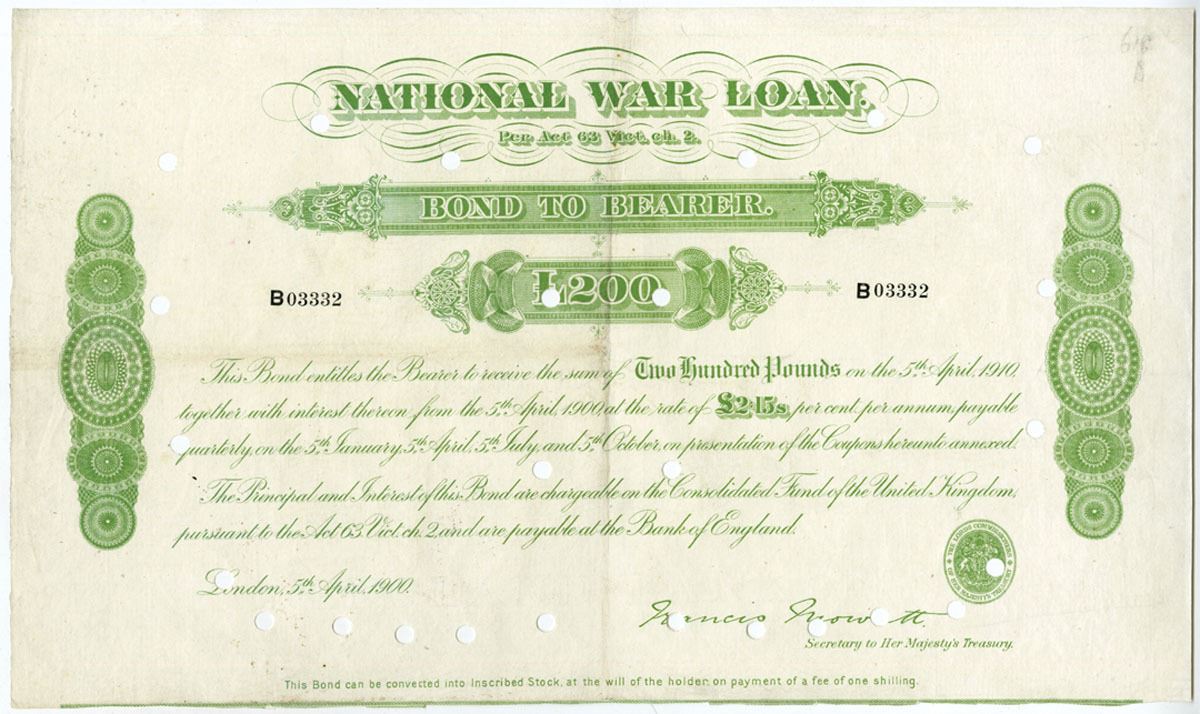 NATIONAL WAR LOAN.
Per Act 63 Vict. ch. 2.
BOND TO BEARER.
£200
B03332
B03332
This Bond entitles the Bearer to receive the sum of Two Hundred Pounds on the 5th April, 1910,
together with interest thereon from the 5th April, 1900, at the rate of £2·15s, per cent, per annum, payable
quarterly, on the 5th January, 5th April, 5th July, and 5th October, on presentation of the Coupons hereunto annexed.
The Principal and Interest of this Bond are chargeable on the Consolidated Fund of the United Kingdom,
pursuant to the Act 63, Vict. ch. 2, and are payable at the Bank of England.
THE LORDS COMMISSIONERS OF HER MAJESTY'S TREASURY
London, 5th April, 1900.
Francis Mowatt
Secretary to Her Majesty's Treasury.
This Bond can be convected into Inscribed Stock, at the will of the holder, on payment of a fee of one shilling.